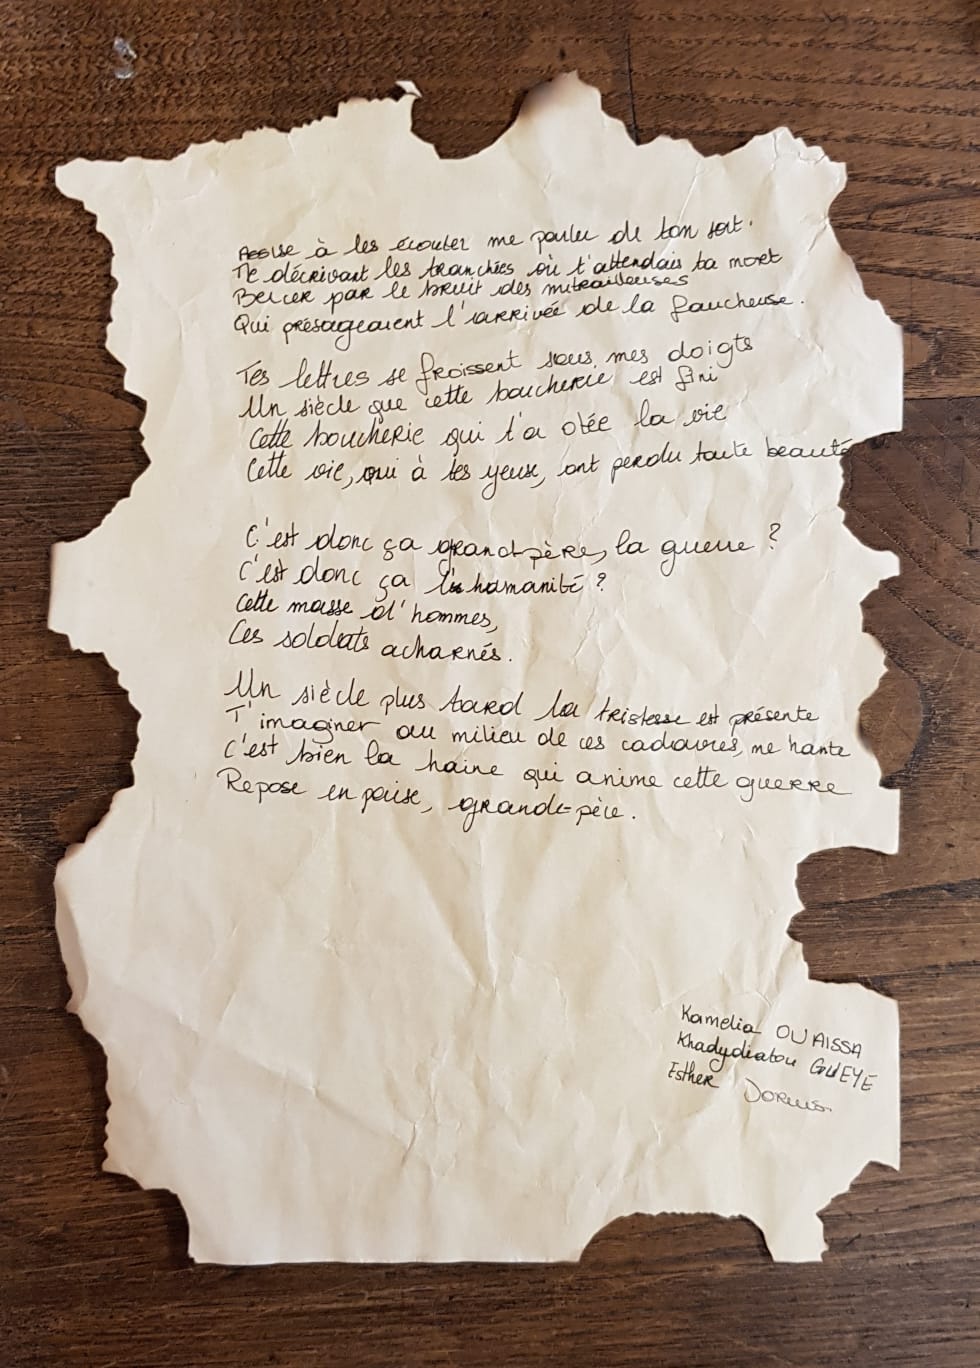 Assise à les écouter me parler de ton sort.
Me décrivant les tranchées où t'attendais ta mort
Bercer par le bruit des mitrailleuses
Qui présageaient l'arrivée de la faucheuse.
Tes lettres se froissent sous mes doigts
Un siècle que cette boucherie est fini
Cette boucherie qui t'a otée la vie
Cette vie, qui à tes yeux, ont perdu toute beauté
C'est donc ça grand-père, la guerre ?
C'est donc ça l'humanité ?
Cette masse d'hommes,
Ces soldats acharnés.
Un siècle plus tard la tristesse est présente
T'imaginer au milieu de ces cadavres, me hante
C'est bien la haine qui anime cette guerre
Repose en paise, grand-père.
Kamelia OUAISSA
Khadydiatou GUEYE
Esther